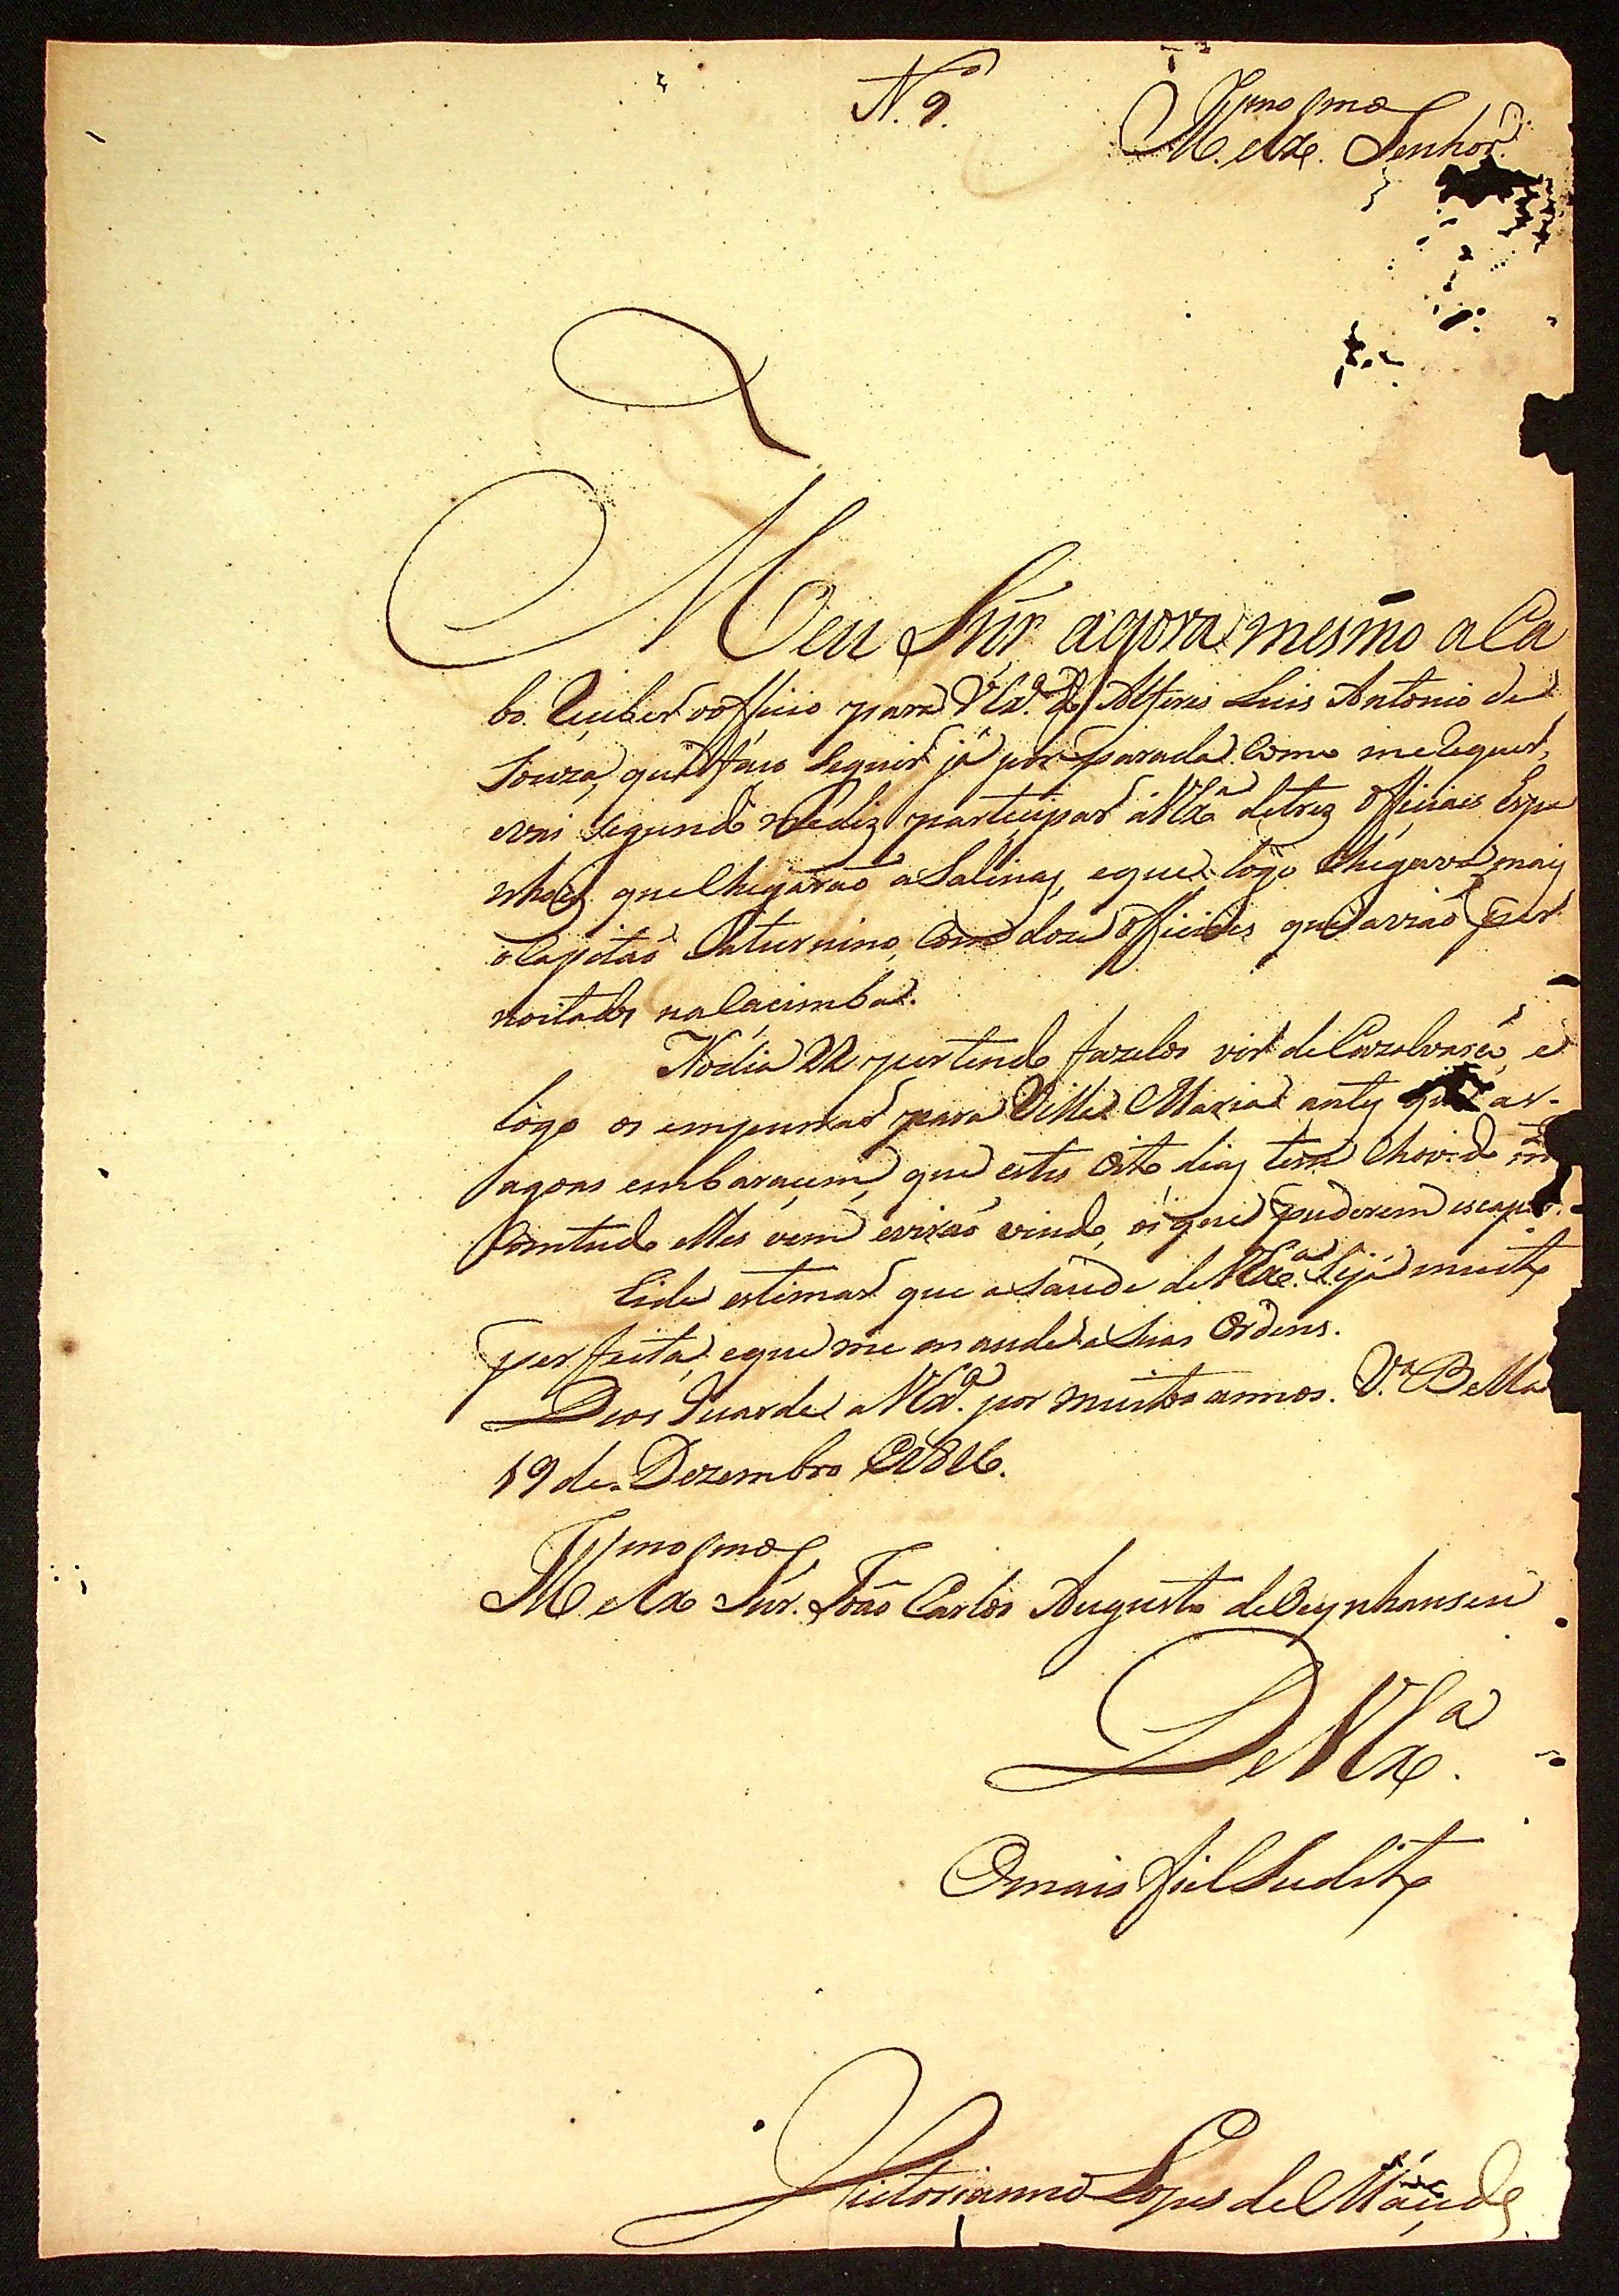 N.º 9.
Illmo. e Exmo. Senhor.
Meu Snr. agora mesmo aca
bo receber o officio para V Exª. do Alferes Luis Antonio de
Souza, que faço seguir já por parada como me requer,
e vai segundo me diz participar á V Exª de trez Officiaes Espa
nhoes que chegárão a Salinas, e que logo chegava mais
o Capitão Saturnino, com doze Officiaes que avião per
noitado na Cacimba.
No dia 22 pertendo fazelos vir de Cazalvasco, e
logo os empurrar para Villa Maria antes que as
agoas embaracem, que estes oito dias tem chovido
Comtudo elles vem e virão vindo, os que puderem escapar.
Eide estimar que a Saude de V Exª. Seja muito
perfeita, e que me mande a Suas Ordens.
Deos Guarde a V Exª. por muitos annos. Vª. Bella
19 de Dezembro 1816.
Illmo. e Exmo. Snr. João Carlos Augusto de Oeynhausen
De V Exª.
O mais fiel Sudito
Victorianno Lopes de Macedo